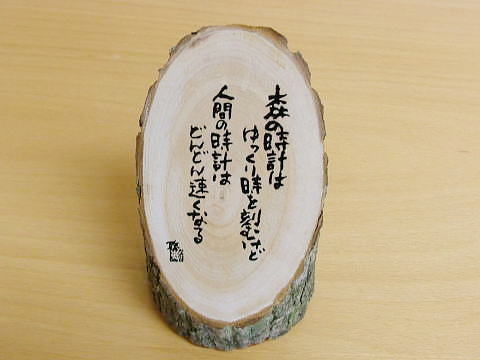 森の時計は
ゆっくり時を刻むけど
人間の時計は
どんどん速くなる